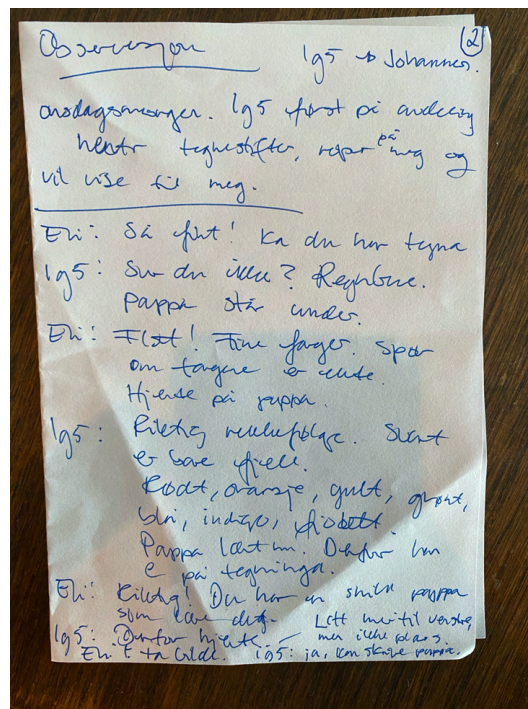 Observasjon
(2)
1g5 → Johannes.
onsdagsmorgen. 1g5 først på avdeling
henter tegnestifter, roper på meg og
vil vise til meg.
Eli: Så fint! Ka du har tegna
1g5: Ser du ikke? Regnbue.
Pappa står under.
Eli: Flot! Fine farger. Spør
om fargene er ekte.
Hjerte på pappa.
1g5: Riktig rekkefølge. Svart
er bare fjell.
Rødt, oransje, gult, grønt,
blå, indigo, fiolett.
Pappa lært mæ. Derfor han
e på tegninga.
Eli: Riktig! Du har en snill pappa
som lære deg.
1g5: Derfor hjerte. – Litt mer til venstre,
men ikke plass.
Eli: ta bilde. 1g5: ja, kan skrive pappa.